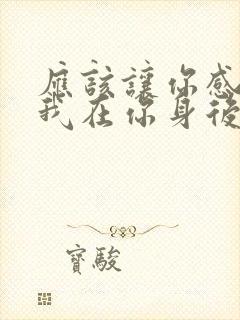 應該讓你感
我在你身後
寶駿